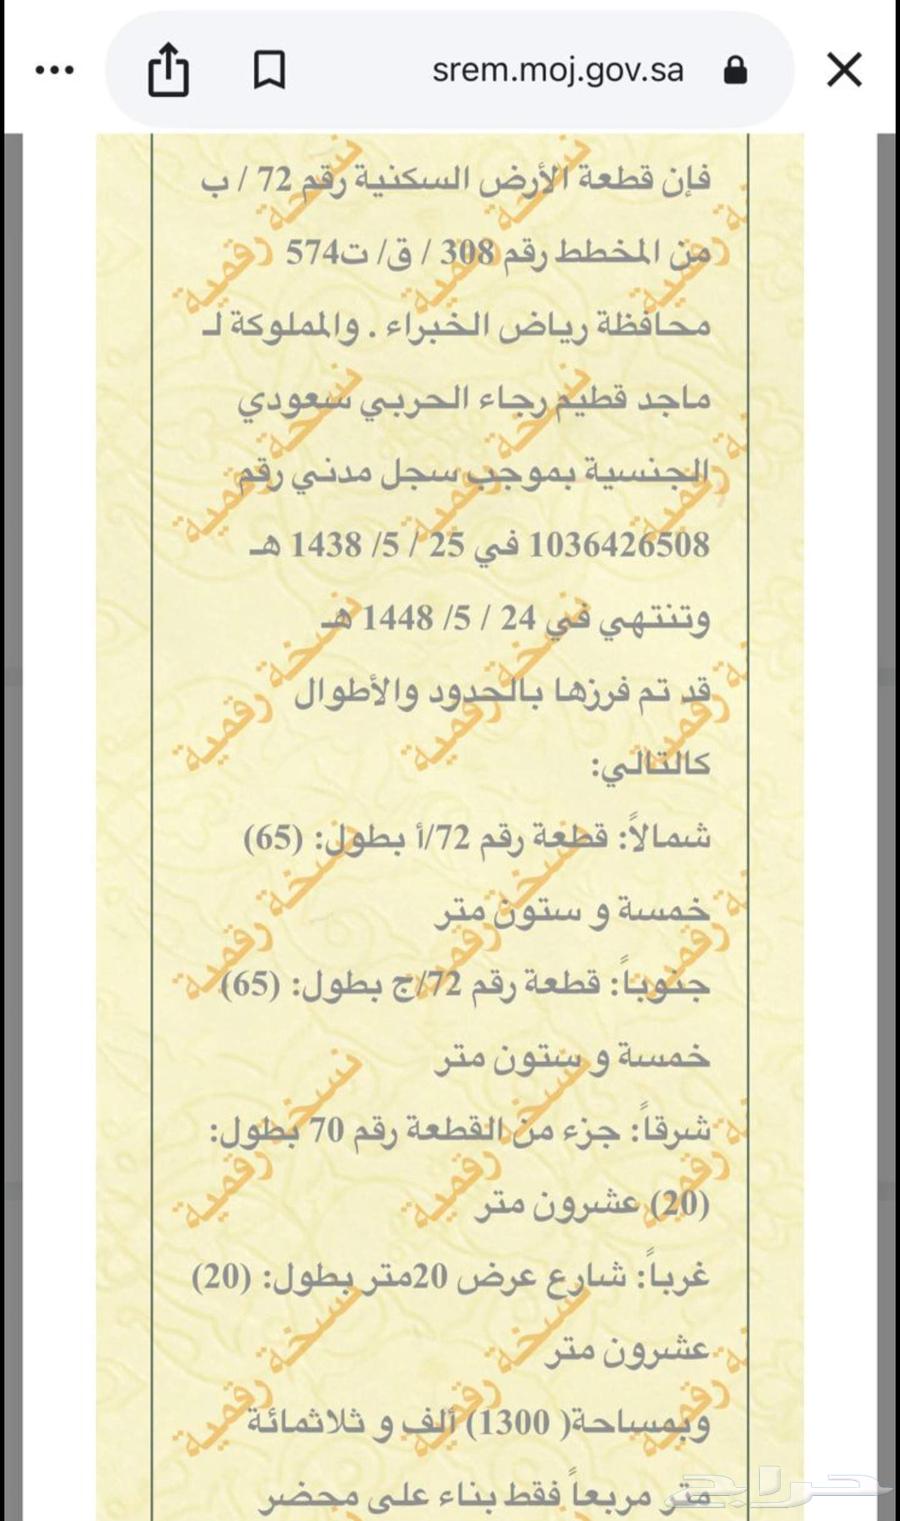 srem.moj.gov.sa
فإن قطعة الأرض السكنية رقم 72 / ب
من المخطط رقم 308 / ق/ ت574
محافظة رياض الخبراء . والمملوكة لـ
ماجد قطيم رجاء الحربي سعودي
الجنسية بموجب سجل مدني رقم
1036426508 في 25 / 5/ 1438 هـ
وتنتهي في 24 / 5/ 1448 هـ
قد تم فرزها بالحدود والأطوال
كالتالي:
شمالاً: قطعة رقم 72/أ بطول: (65)
خمسة و ستون متر
جنوباً: قطعة رقم 72/ج بطول: (65)
خمسة و ستون متر
شرقاً: جزء من القطعة رقم 70 بطول:
(20) عشرون متر
غرباً: شارع عرض 20متر بطول: (20)
عشرون متر
وبمساحة( 1300) ألف و ثلاثمائة
متر مربعاً فقط بناء على محضر
نسخة رقمية
حراج